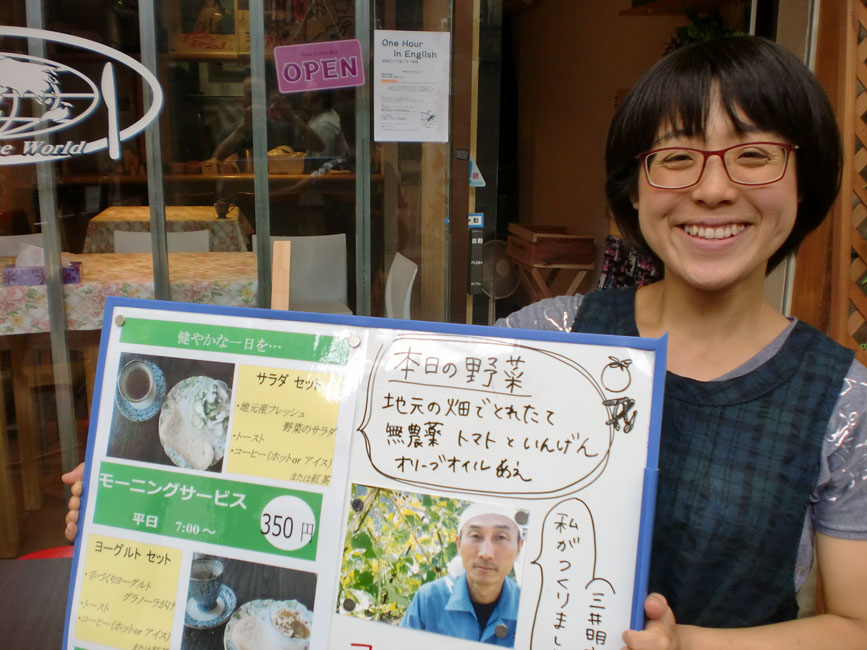 e World
OPEN
One Hour
in English
健やかな一日を…
サラダ セット
・地元産フレッシュ
野菜のサラダ
・トースト
・コーヒー(ホット or アイス)
または紅茶
モーニングサービス
平日 7:00～
350円
ヨーグルト セット
・手づくりヨーグルト
グラノーラがけ
・トースト
・コーヒー(ホット or アイス)
または紅茶
本日の野菜
地元の畑でとれたて
無農薬 トマトといんげん
オリーブオイルあえ
私がつくりまし
三井明